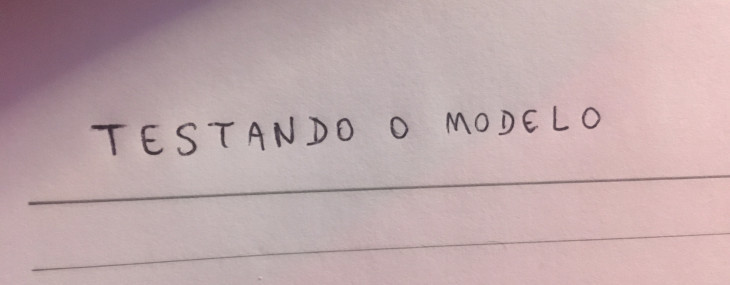 TESTANDO O MODELO